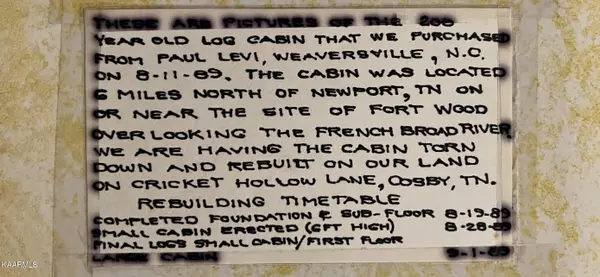 THESE ARE PICTURES OF THE 200
YEAR OLD LOG CABIN THAT WE PURCHASED
FROM PAUL LEVI, WEAVERSVILLE, N.C.
ON 8-11-89. THE CABIN WAS LOCATED
6 MILES NORTH OF NEWPORT, TN ON
OR NEAR THE SITE OF FORT WOOD
OVER LOOKING THE FRENCH BROAD RIVER.
WE ARE HAVING THE CABIN TORN
DOWN AND REBUILT ON OUR LAND
ON CRICKET HOLLOW LANE, COSBY, TN.
REBUILDING TIMETABLE
COMPLETED FOUNDATION & SUB-FLOOR 8-19-89
SMALL CABIN ERECTED (6FT HIGH) 8-28-89
FINAL LOGS SMALL CABIN/FIRST FLOOR
LARGE CABIN 9-1-89
KAARMLS